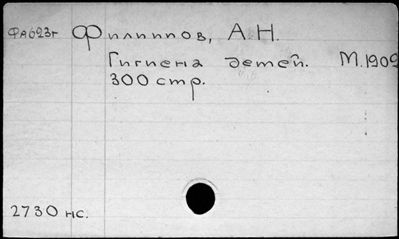 ФА623г Филиппов, А.Н.
Гигиена детей. М.1909
300 стр.
2730 нс.